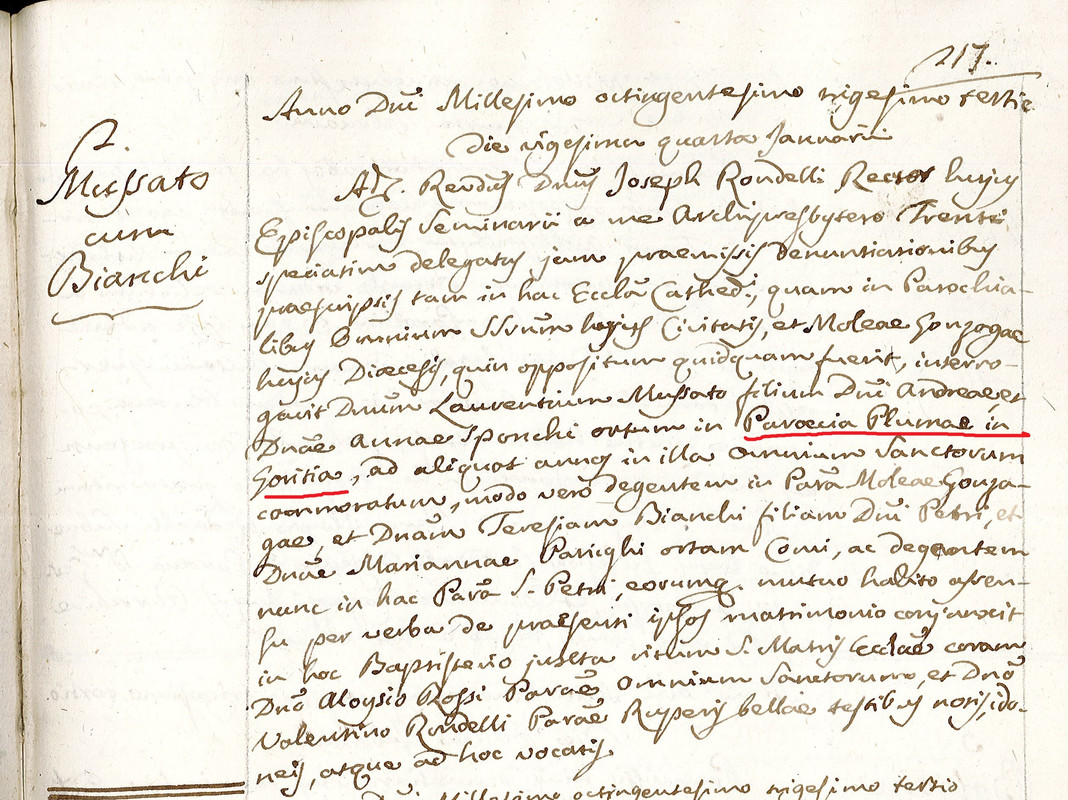 217.
Anno Dni Millesimo octingentesimo trigesimo tertio
die vigesima quarta Januarii
2.
Mussato
cum
Bianchi
Rendus Dnus Joseph Rondelli Rector hujus
Episcopalis Seminarii a me Archipresbytero
speciatim delegatus jam praemissis denuntiationibus
praescriptis tam in hac Eccla Cathedi, quam in Parochia-
libus Omnium SSrum hujus Civitatis, et Moleae Gonzogae
hujus Dioecesis, quin oppositum quidquam fuerit, interro-
gavit Dnum Laurentium Mussato filium Dni Andreae, et
Dnae Annae Sponchi ortum in Paroecia Plumae in
Goritia, ad aliquot annos in illa Omnium Sanctorum
commoratum, modo vero degentem in Para Moleae Gonza-
gae, et Dnam Teresiam Bianchi filiam Dni Petri, et
Dnae Mariannae Parighi ortam Comi, ac degentem
nunc in hac Para S. Petri, eorumq. mutuo habito asen-
su per verba de praesenti ipsos matrimonio conjunxit
in hoc Baptisterio juxta ritum S. Matris Ecclae coram
Dno Aloysio Rossi Parae Omnium Sanctorum, et Dno
Valentino Rondelli Parae Ruperis bellae testibus notis, ido-
neis, atque ad hoc vocatis.
Dni Millesimo octingentesimo trigesimo tertio